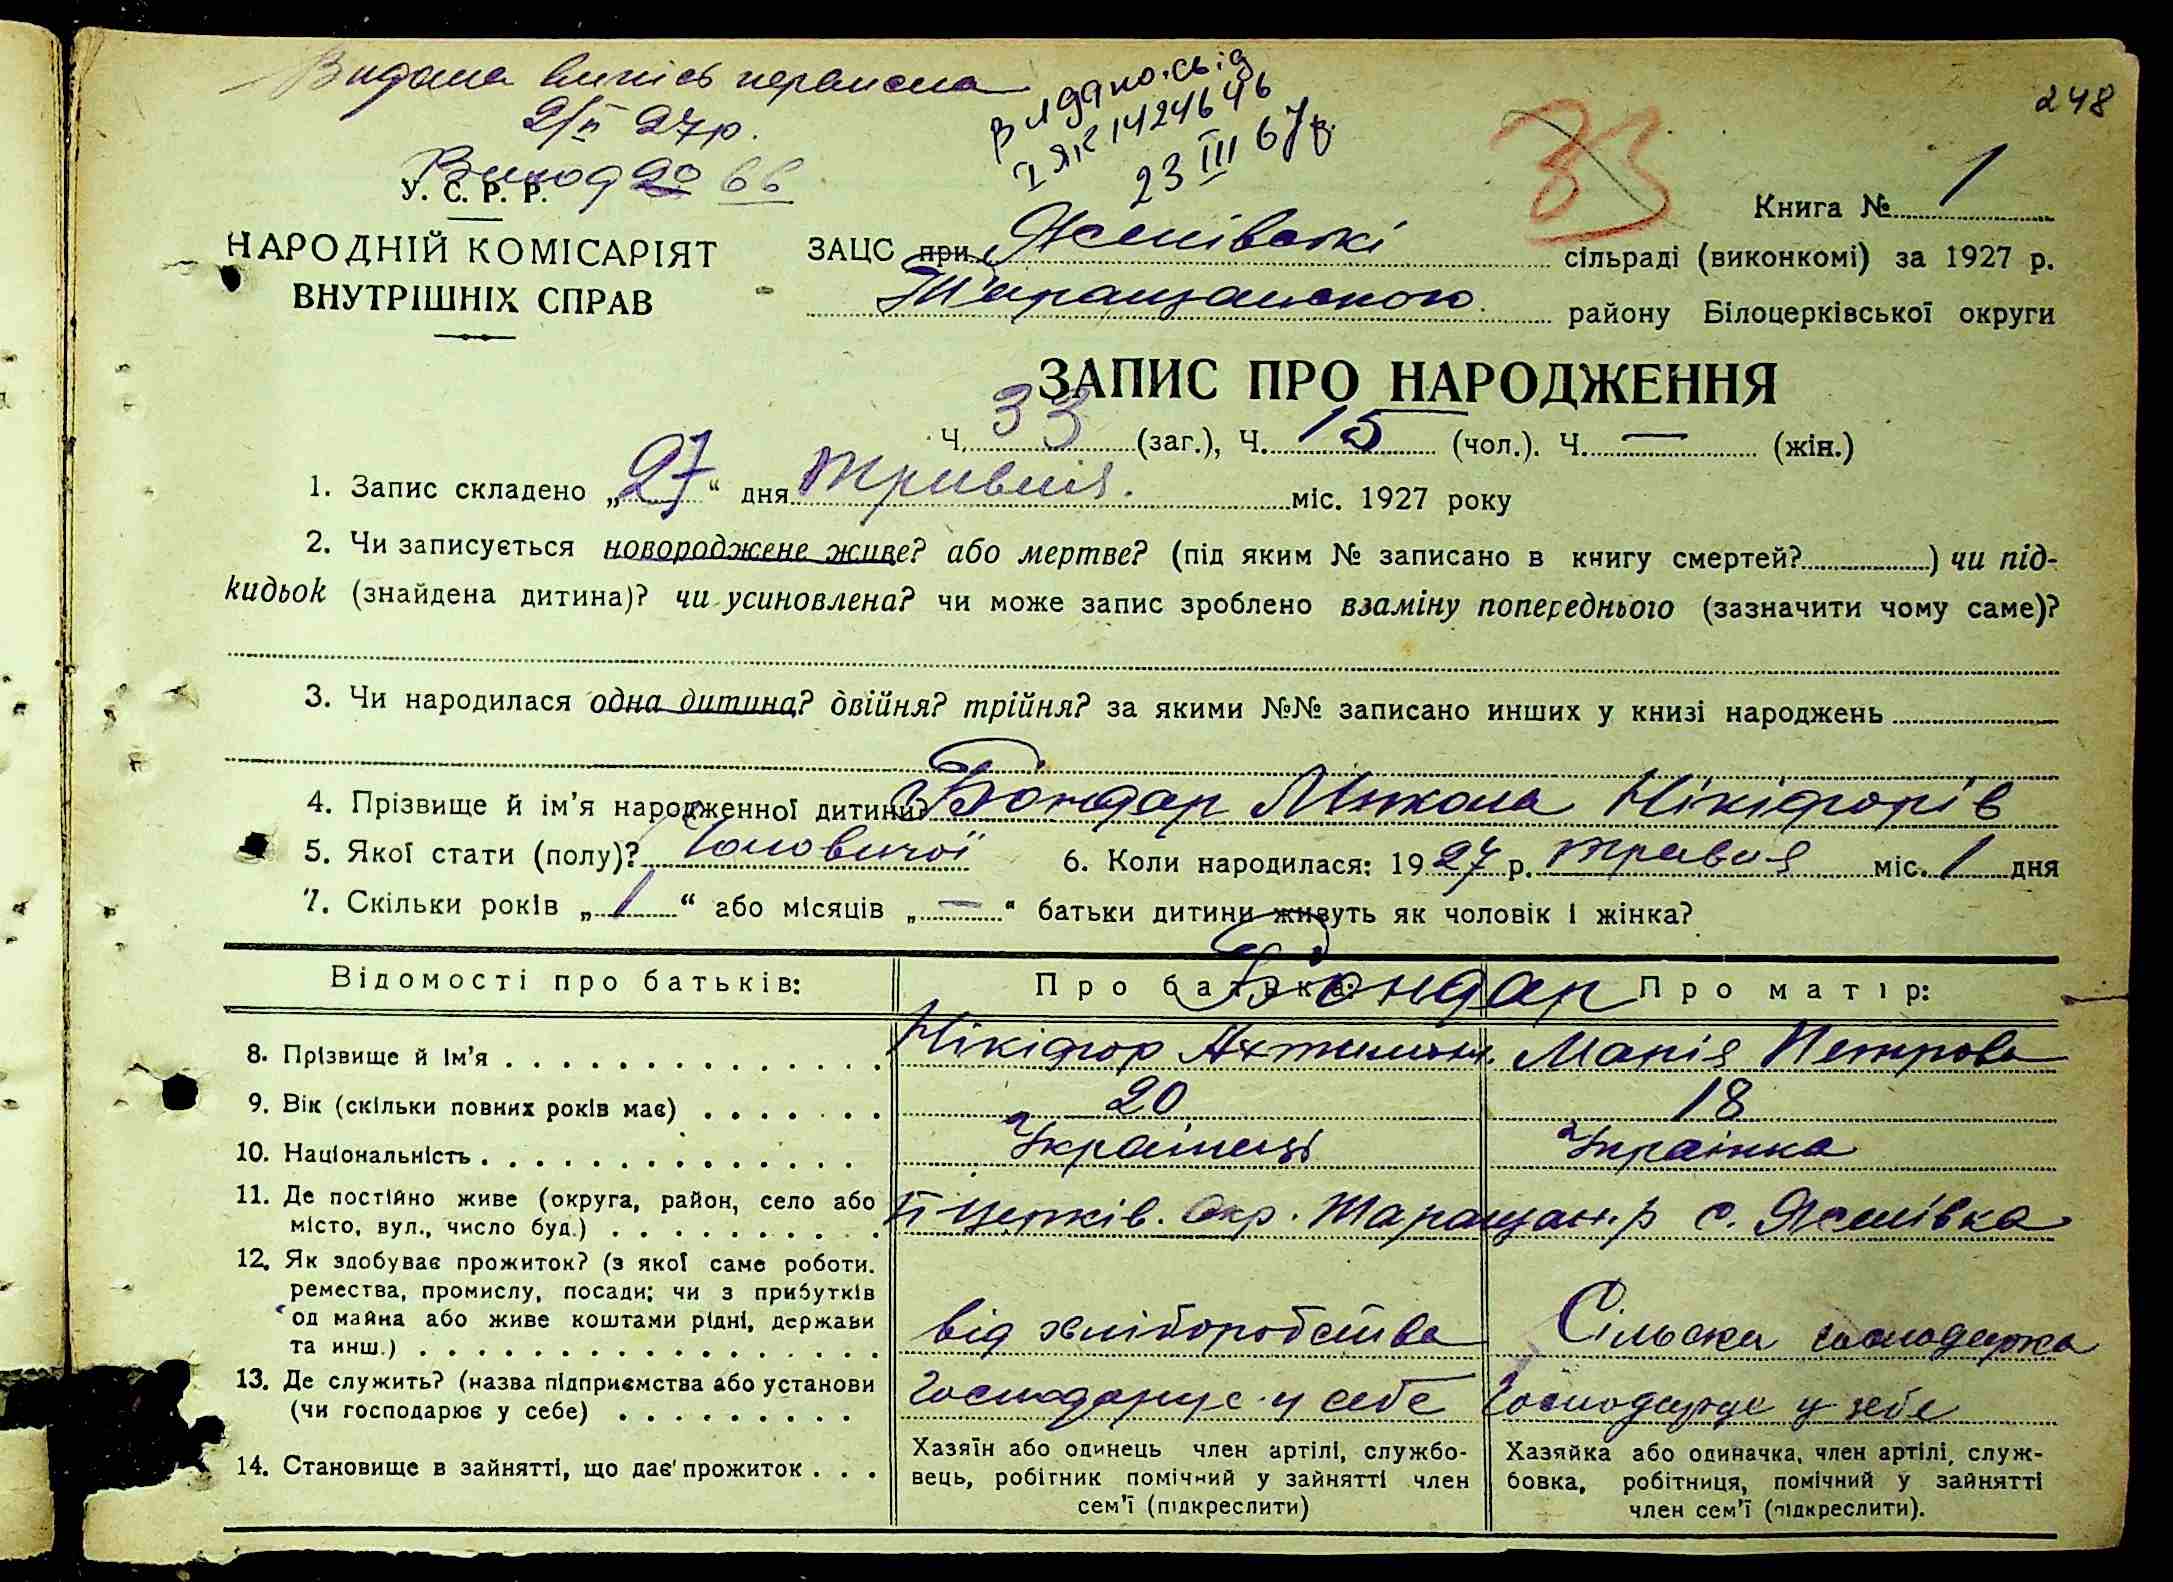 Видана випись
2/VI 27р.
248
23 III 67р.
33
У. С. Р. Р.
НАРОДНІЙ КОМІСАРІЯТ
ВНУТРІШНІХ СПРАВ
Книга № 1
ЗАЦС при Яснівські сільраді (виконкомі) за 1927 р.
Таращанського району Білоцерківської округи
ЗАПИС ПРО НАРОДЖЕННЯ
Ч. 33 (заг.), Ч. 15 (чол.). Ч. — (жін.)
1. Запис складено „27“ дня травня. міс. 1927 року
2. Чи записується новороджене живе? або мертве? (під яким № записано в книгу смертей?) чи під-
кидьок (знайдена дитина)? чи усиновлена? чи може запис зроблено взаміну попереднього (зазначити чому саме)?
3. Чи народилася одна дитина? двійня? трійня? за якими №№ записано инших у книзі народжень
4. Прізвище й ім'я народженної дитини? Бондар Микола Нікіфорів
5. Якої стати (полу)? Чоловичої 6. Коли народилася: 1927 р. травня міс. 1 дня
7. Скільки років „1“ або місяців „—“ батьки дитини живуть як чоловік і жінка?
Відомості про батьків: Про батька: Бондар Про матір:
8. Прізвище й ім'я Нікіфор Марія Петрова
9. Вік (скільки повних років має) 20 18
10. Національність Украінець Украінка
11. Де постійно живе (округа, район, село або
місто, вул., число буд.) Б Церків. Окр. Таращан. р с. Яснівка
12. Як здобуває прожиток? (з якої саме роботи.
ремества, промислу, посади; чи з прибутків
од майна або живе коштами рідні, держави
та инш.) від хліборобства Сільска господарка
13. Де служить? (назва підприємства або установи
(чи господарює у себе) Господарує у себе Господарує у себе
14. Становище в зайнятті, що дає прожиток
Хазяїн або одинець член артілі, службо-
вець, робігник помічний у зайнятті член
сем'ї (підкреслити)
Хазяйка або одиначка, член артілі, служ-
бовка, робітниця, помічний у зайнятті
член сем'ї (підкреслити).